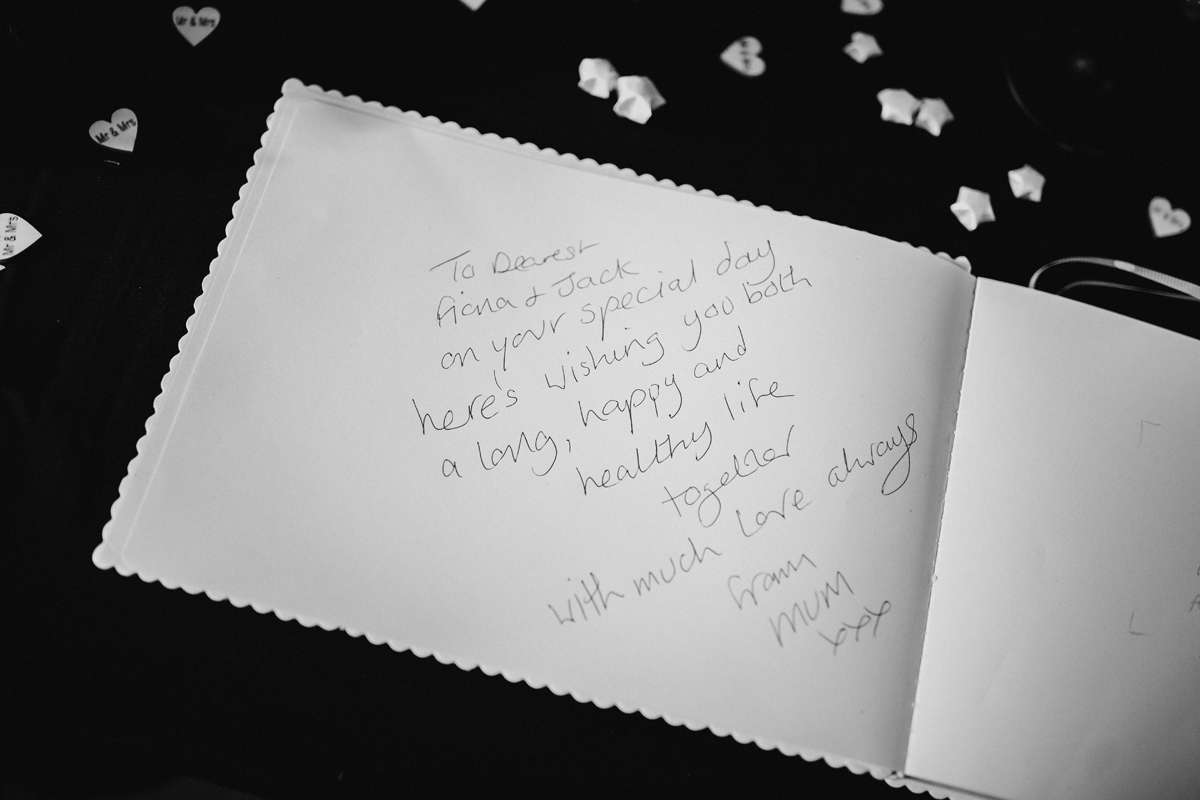 Mr & Mrs
Mr & Mrs
Mr & Mrs
To Dearest
Fiona & Jack
on your special day
here's wishing you both
a long, happy and
healthy life
together
with much love always
from
MUM
xxx